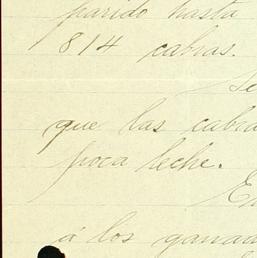 parido hasta
814 cabras.
Se
que las cabra
poca leche.
En
á los ganad